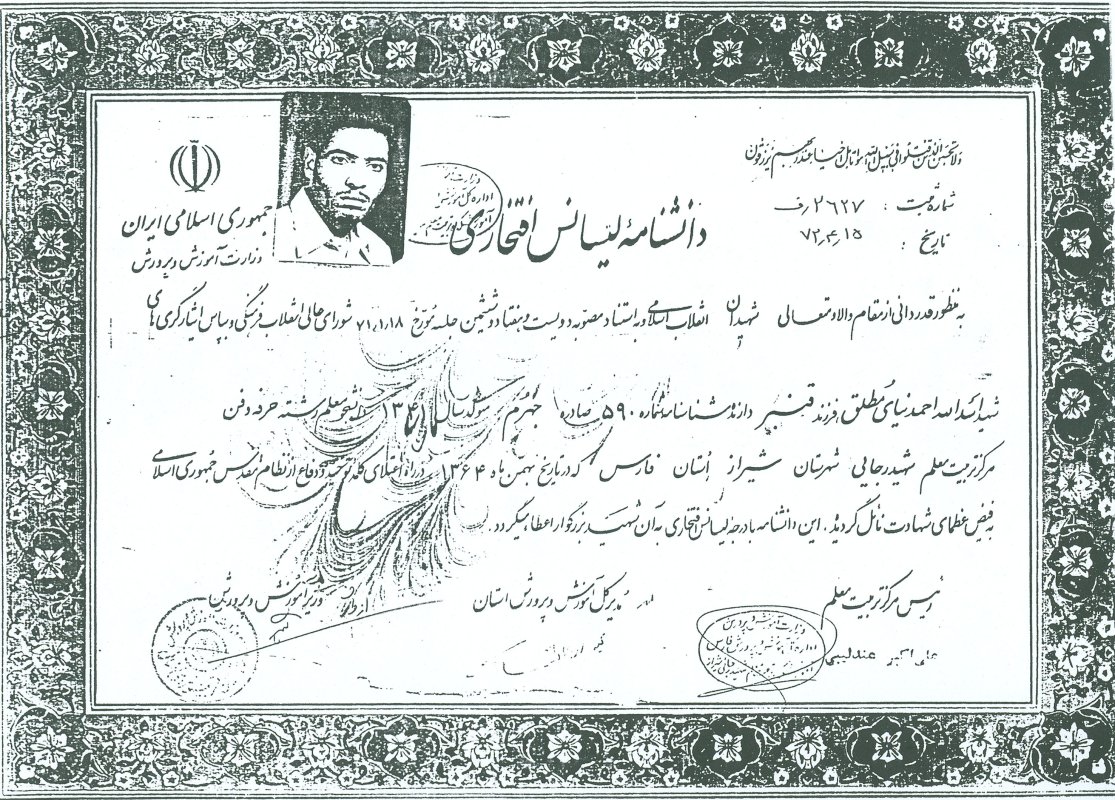 ولا تحسبن الذین قتلوا فی سبیل الله امواتا بل احیاء عند ربهم یرزقون
جمهوری اسلامی ایران
وزارت آموزش و پرورش
شماره ثبت : ۲۶۲۷/ف
تاریخ : ۷۲/۴/۱۵
دانشنامهٔ لیسانس افتخاری
به منظور قدردانی از مقام والا و متعالی شهیدان انقلاب اسلامی و به استناد مصوبه دویست و هفتاد و ششمین جلسه مورخ ۷۱/۱/۱۸ شورای عالی انقلاب فرهنگی و بپاس ایثارگری های
شهید اسدالله احمدنیای مطلق فرزند قنبر دارنده شناسنامه شماره ۵۹۰ صادره جهرم متولد سال ۱۳۴۱ دانشجو معلم رشته حرفه و فن
مرکز تربیت معلم شهید رجایی شهرستان شیراز استان فارس که در تاریخ بهمن ماه ۱۳۶۴ در راه اعتلای کلمه توحید و دفاع از نظام مقدس جمهوری اسلامی
به فیض عظمای شهادت نائل گردید. این دانشنامه با درجه لیسانس افتخاری به آن شهید بزرگوار اعطا میگردد.
رئیس مرکز تربیت معلم
علی اکبر عندلیبی
مدیر کل آموزش و پرورش استان
وزیر آموزش و پرورش
وزارت آموزش و پرورش